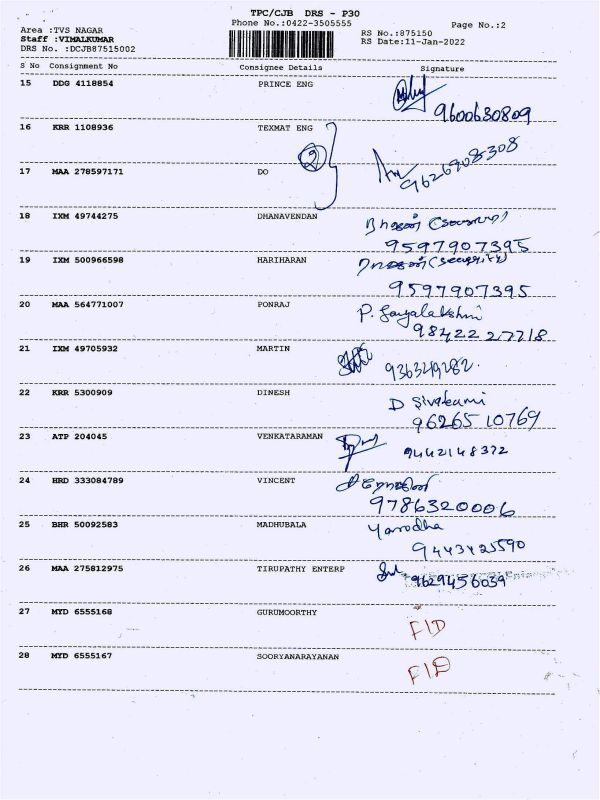 TPC/CJB DRS - P30
Phone No.:0422-3505555 Page No.:2
Area :TVS NAGAR RS No.:875150
Staff :VIMALKUMAR RS Date:11-Jan-2022
DRS No. :DCJB87515002
S No Consignment No Consignee Details Signature
15 DDG 4118854 PRINCE ENG
9600630809
16 KRR 1108936 TEXMAT ENG
2
17 MAA 278597171 DO
9626908308
18 IXM 49744275 DHANAVENDAN
9597907395
19 IXM 500966598 HARIHARAN (security)
9597907395
20 MAA 564771007 PONRAJ P. Jayalakshmi
98422 27718
21 IXM 49705932 MARTIN
9363249282.
22 KRR 5300909 DINESH D Sivakami
9626510769
23 ATP 204045 VENKATARAMAN
9442148372
24 HRD 333084789 VINCENT
9786320006
25 BHR 50092583 MADHUBALA Yasodha
9443425590
26 MAA 275812975 TIRUPATHY ENTERP
9629456039
27 MYD 6555168 GURUMOORTHY
F1D
28 MYD 6555167 SOORYANARAYANAN
F1D